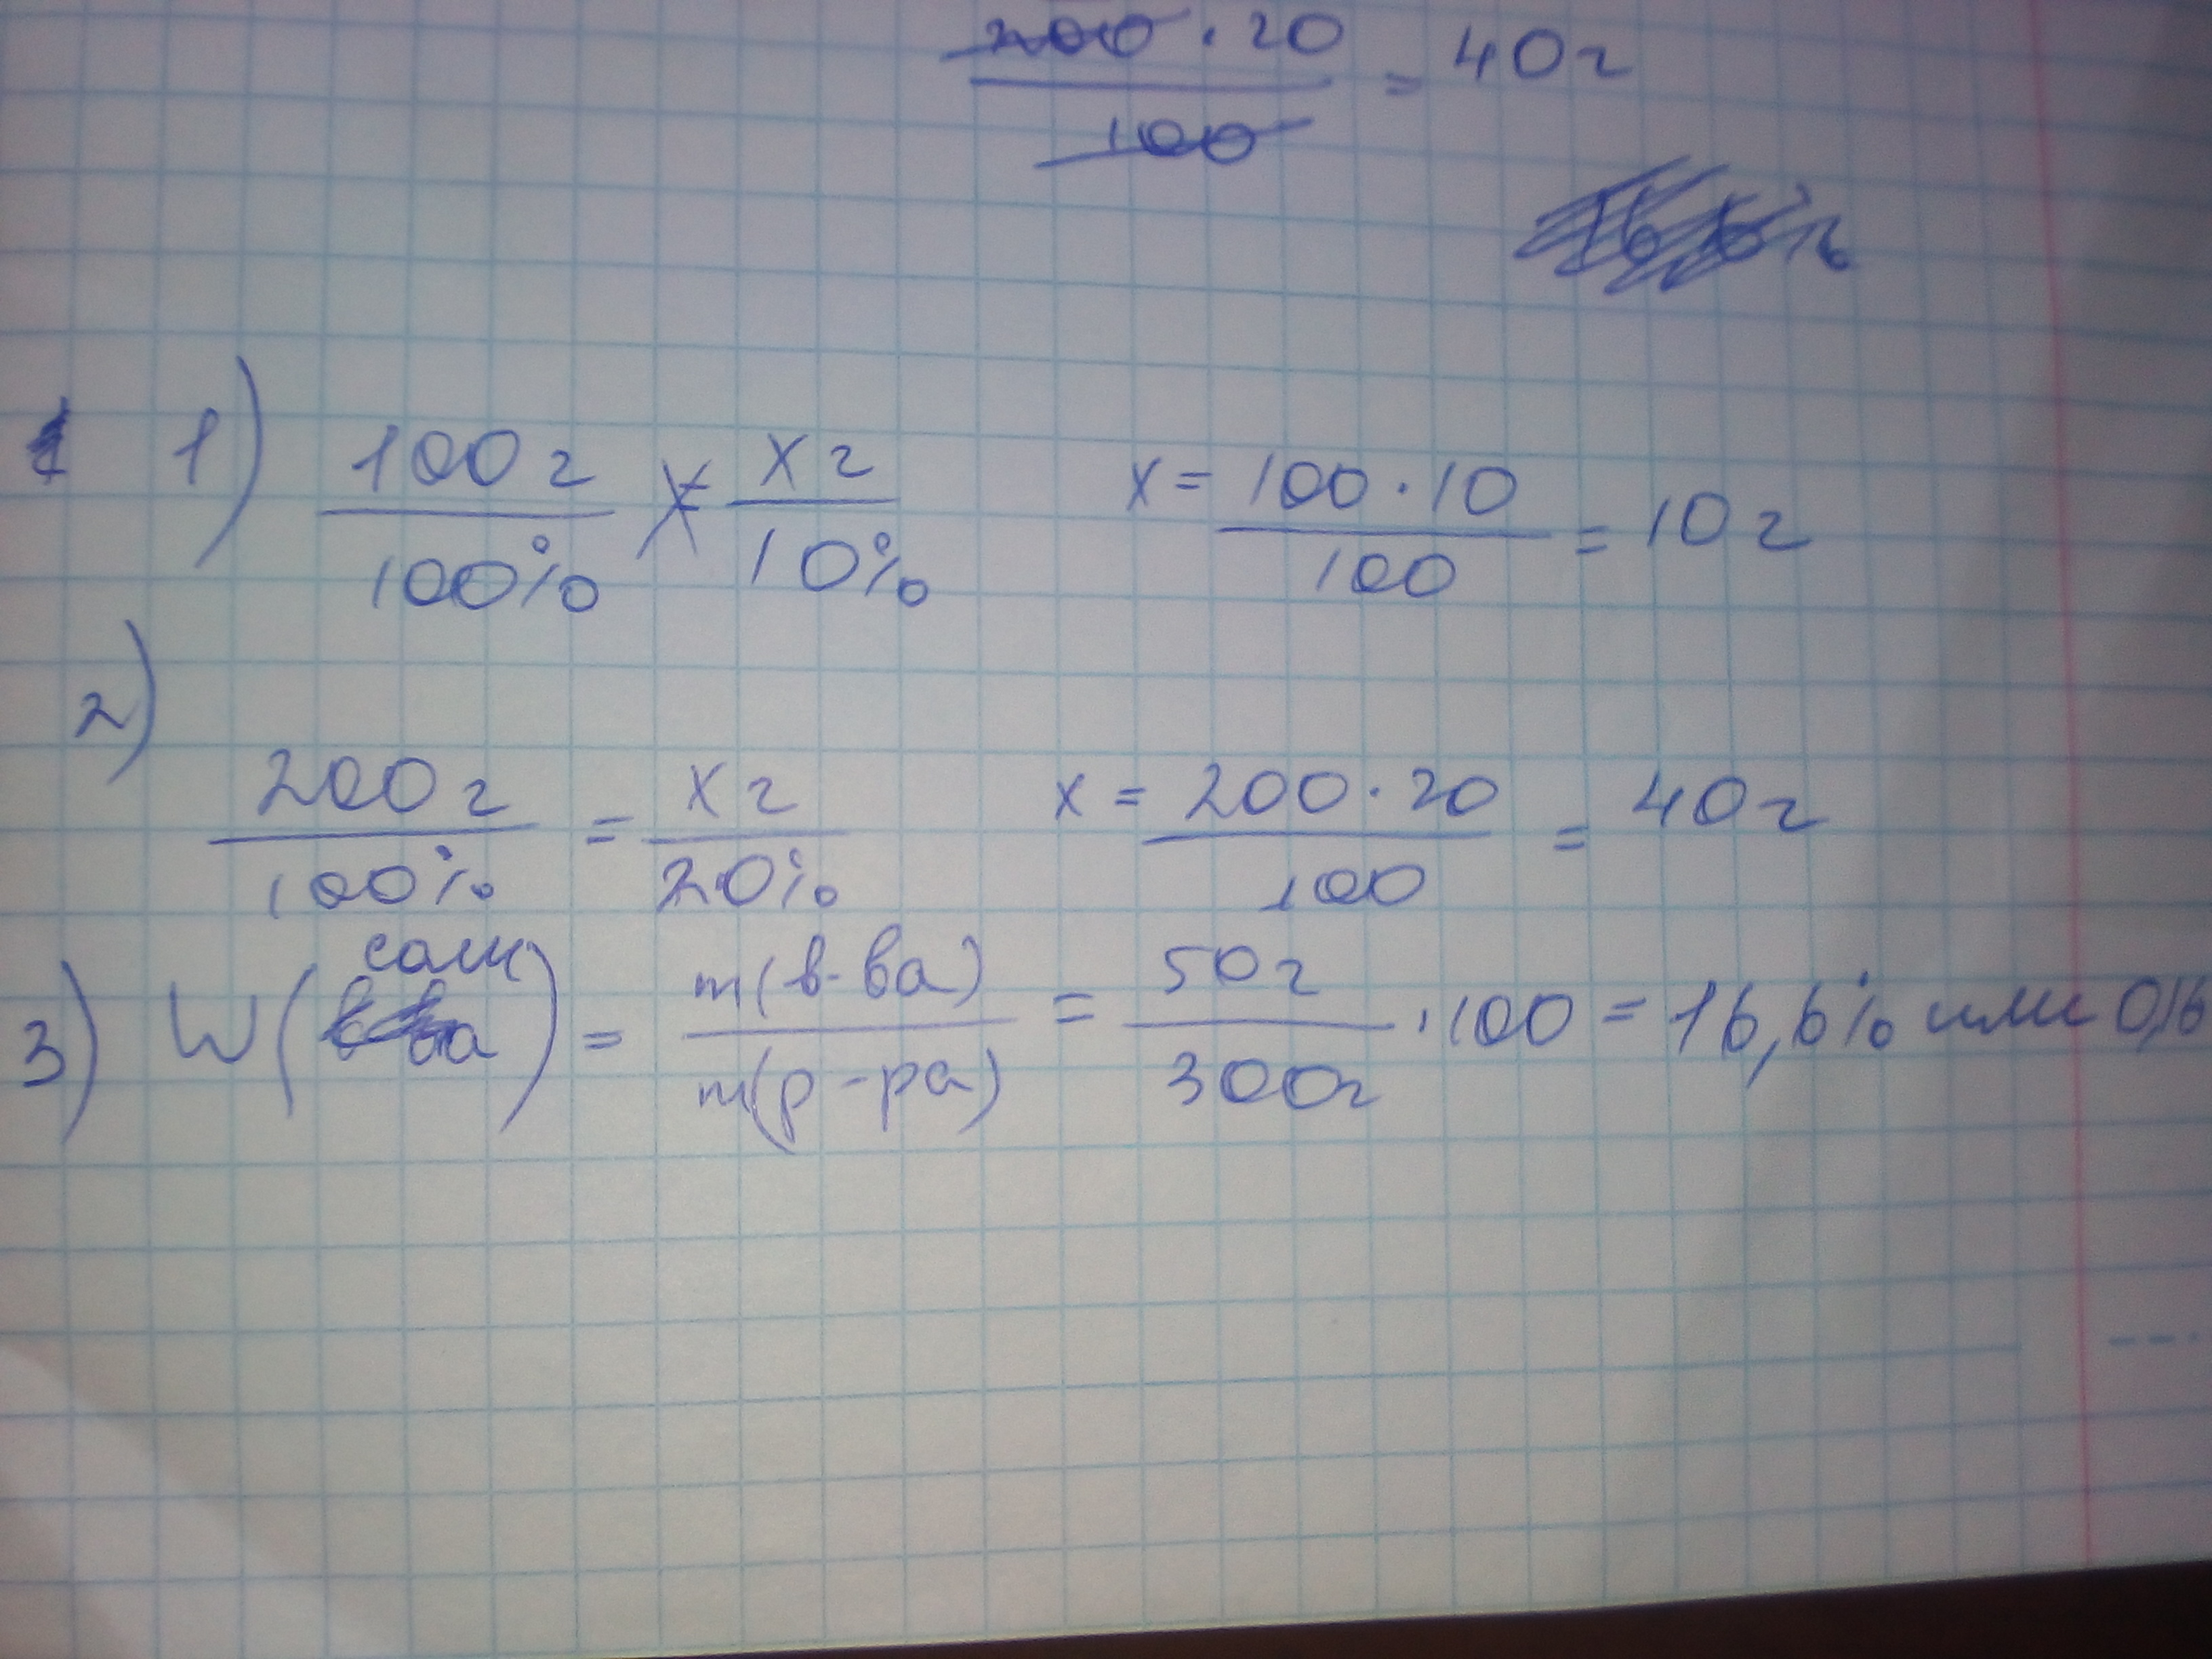 200 · 20 / 100 = 40 г
1) 100 г / 100% = х г / 10%    х = 100 · 10 / 100 = 10 г
2)
200 г / 100% = х г / 20%    х = 200 · 20 / 100 = 40 г
3) W (соли) = m(в-ва) / m(р-ра) = 50 г / 300 г · 100 = 16,6% или 0,16